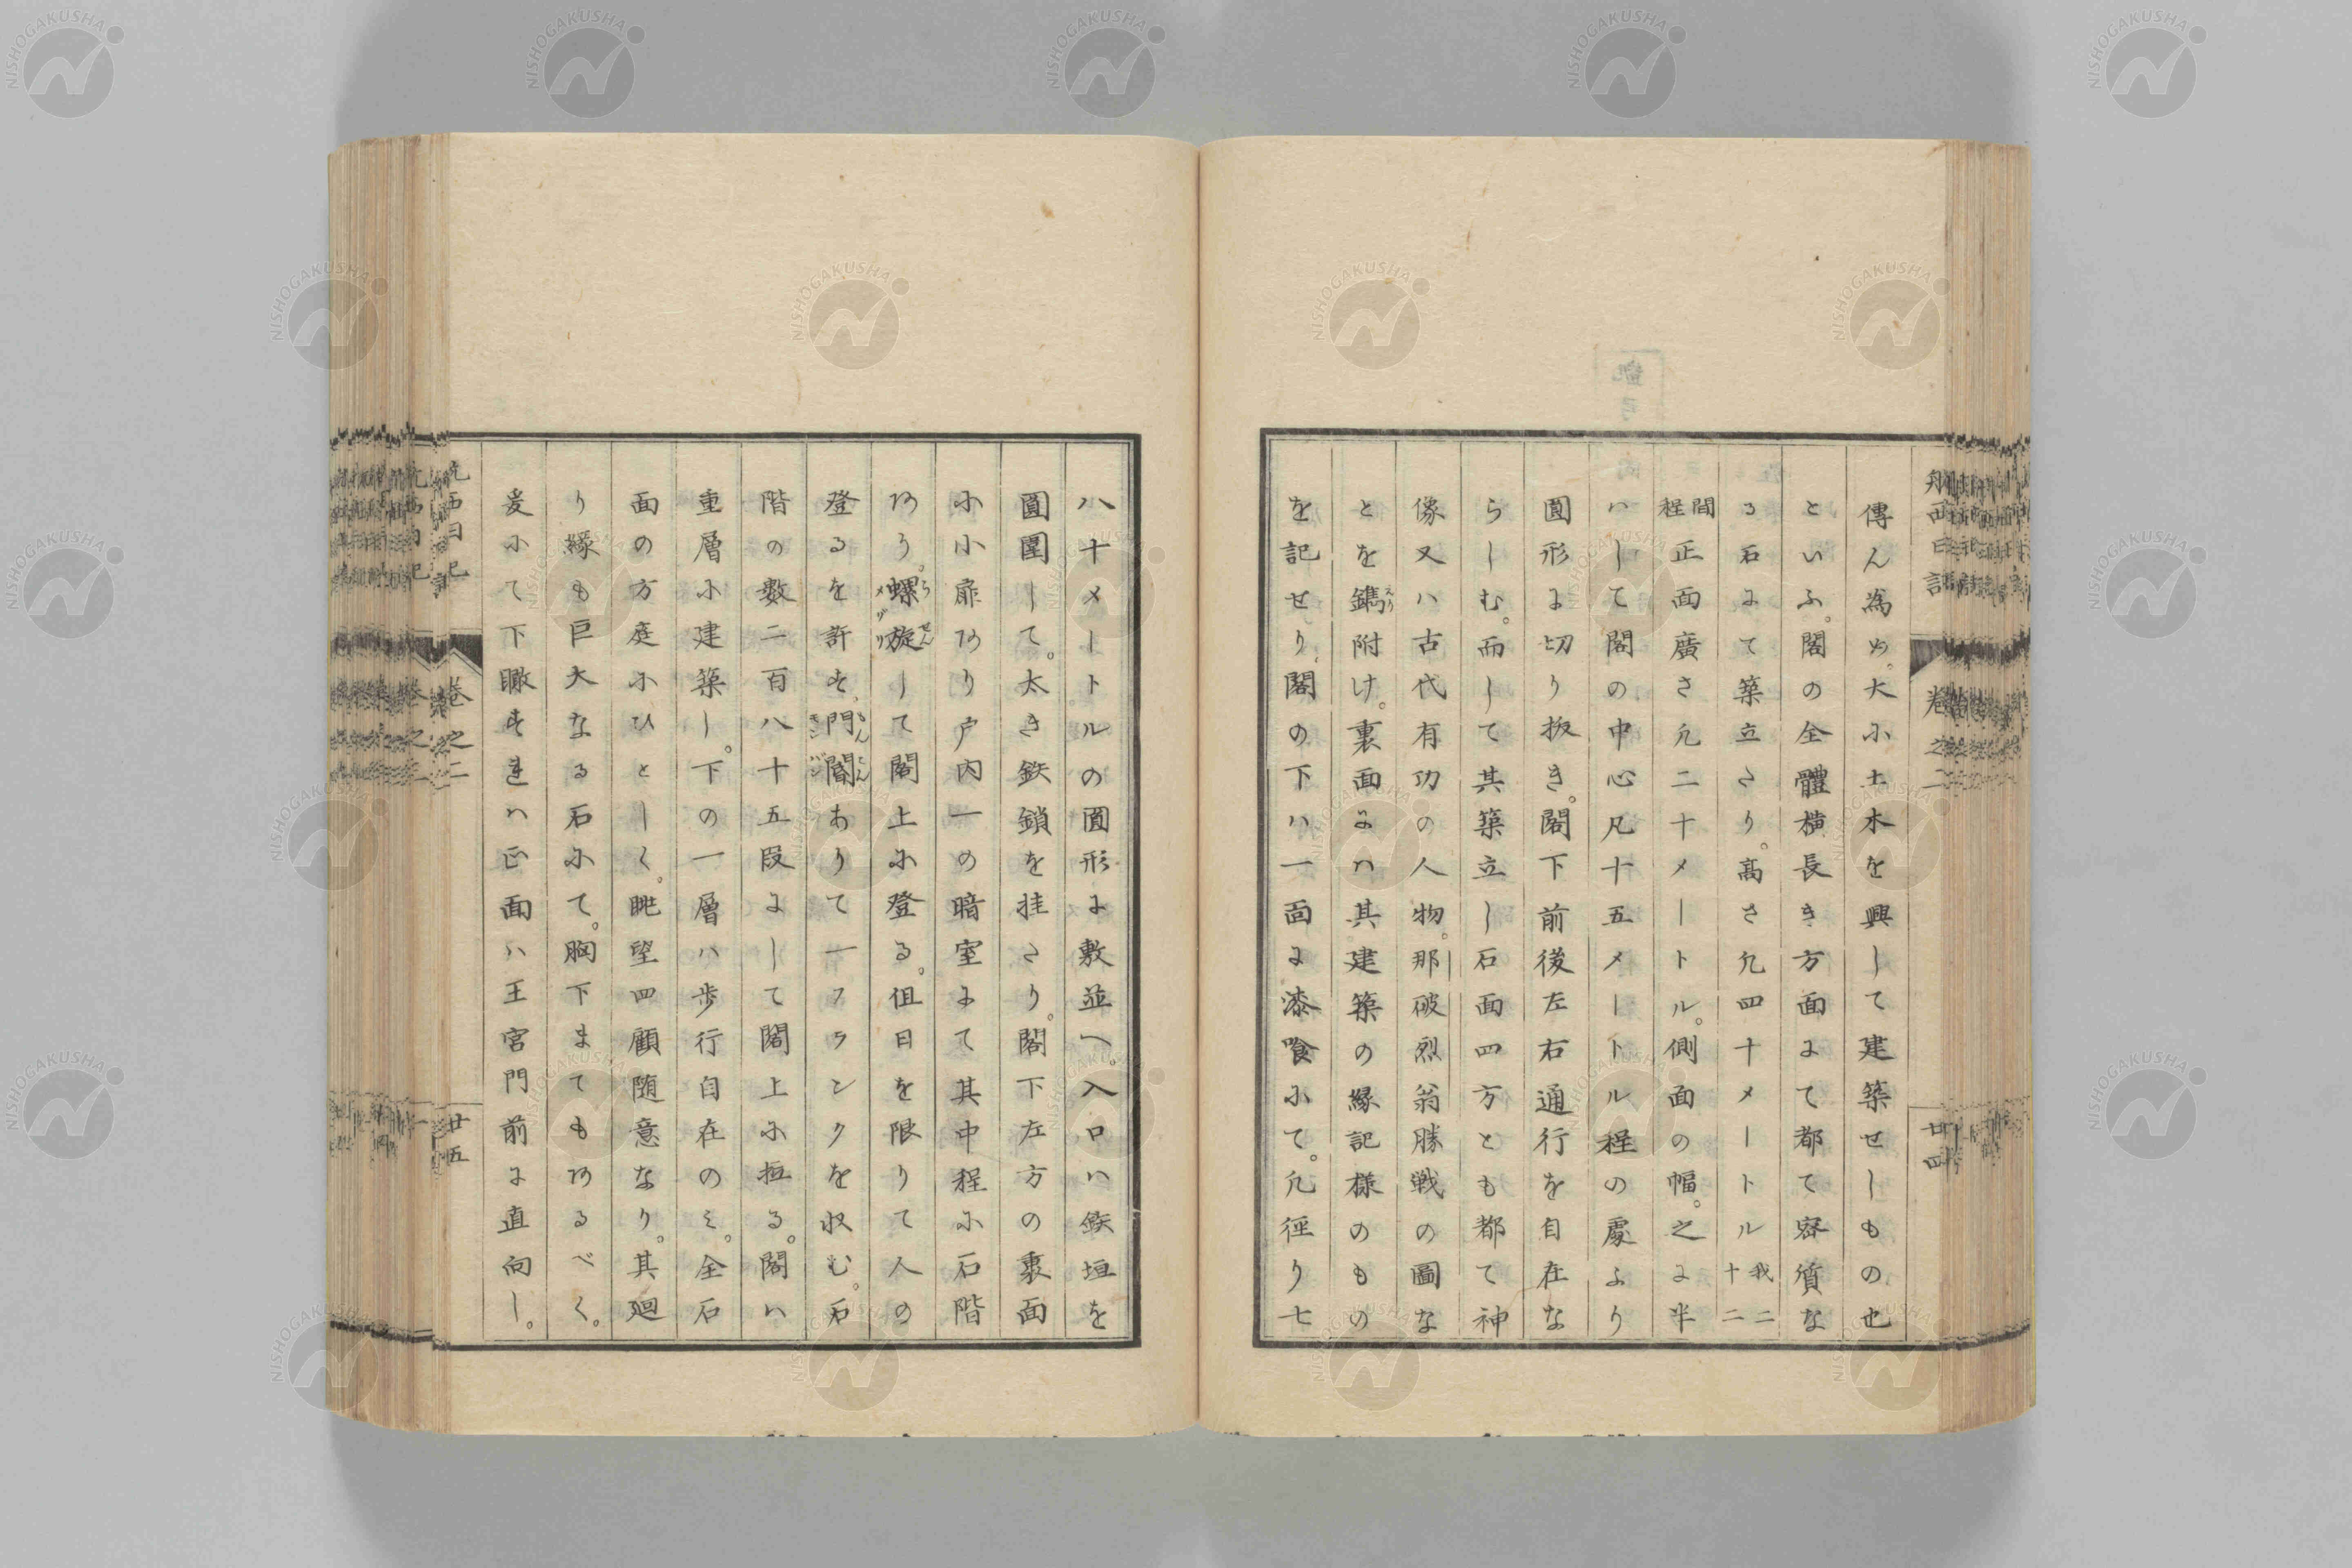 航西日記 卷之二 廿四
傳ん為め。大ふ土木を興して建築せしもの也
といふ。閣の全體横長き方面にて都て密質な
る石にて築立たり。髙さ凢四十メートル我二十二
間程正面廣さ凢二十メートル。側面の幅。之に半
ハして閣の中心凡十五メートル程の處より
圓形に切り抜き。閣下前後左右通行を自在な
らしむ。而して其築立し石面四方とも都て神
像又ハ古代有功の人物。那破烈翁勝戦の圖な
とを鐫附け。裏面にハ其建築の縁記様のもの
を記せり、閣の下ハ一面に漆喰ふて。凢徑り七
八十メートルの圓形に敷並へ。入口ハ鉄垣を
圓圍して。太き鉄鎖を挂たり。閣下左方の裏面
ふ小扉あり戸内一の暗室にて其中程ふ石階
あり。螺旋して閣上ふ登る。但日を限りて人の
登るを許す、門閽ありて一フランクを収む。石
階の數二百八十五段にして閣上ふ拒る。閣ハ
重層ふ建築し。下の一層ハ歩行自在のミ。全石
面の方庭ふひとしく。眺望四顧随意なり。其廻
り縁も巨大なる石ふて。胸下まてもあるべく。
爰ふて下瞰すれハ正面ハ王宮門前に直向し。
航西日記 卷之二 廿五
NISHOGAKUSHA